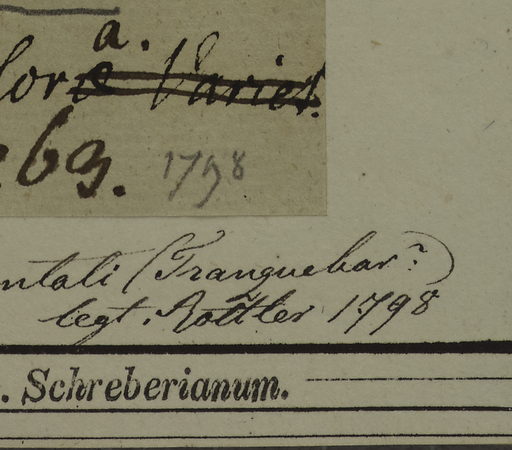 a.
Variet.
63. 1798
ntali (Tranquebar?)
legt. Rottler 1798
. Schreberianum.